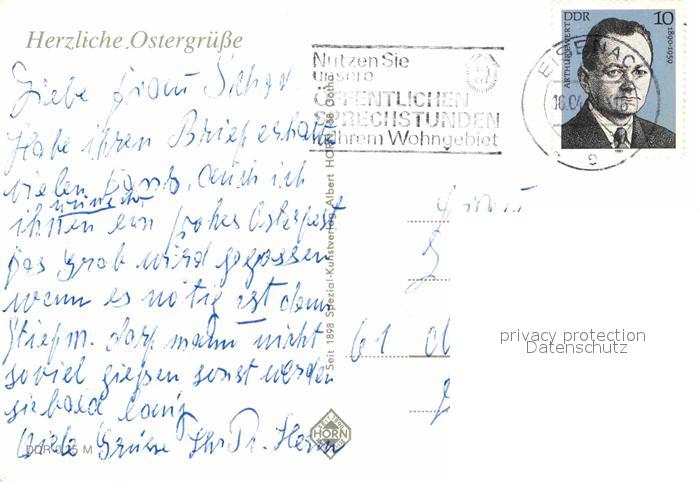 Herzliche Ostergrüße
Liebe Frau
Habe ihren Brief erhalten
vielen Dank, auch ich
wünsche
ihnen ein frohes Osterfest
Das Grab wird gegossen
wenn es nötig ist denn
Stiefm. darf mann nicht
soviel gießen sonst werden
sie bald
Viele Grüsse Ihr Fr.
DDR 0,25 M
Seit 1898 Spezial-Kunstverlag Albert HORN, 58 Gotha
HORN
Nutzen Sie
unsere
ÖFFENTLICHEN
SPRECHSTUNDEN
in Ihrem Wohngebiet
EISENACH
16.04
DDR 10
ARTHUR EWERT 1890-1959
61
privacy protection
Datenschutz